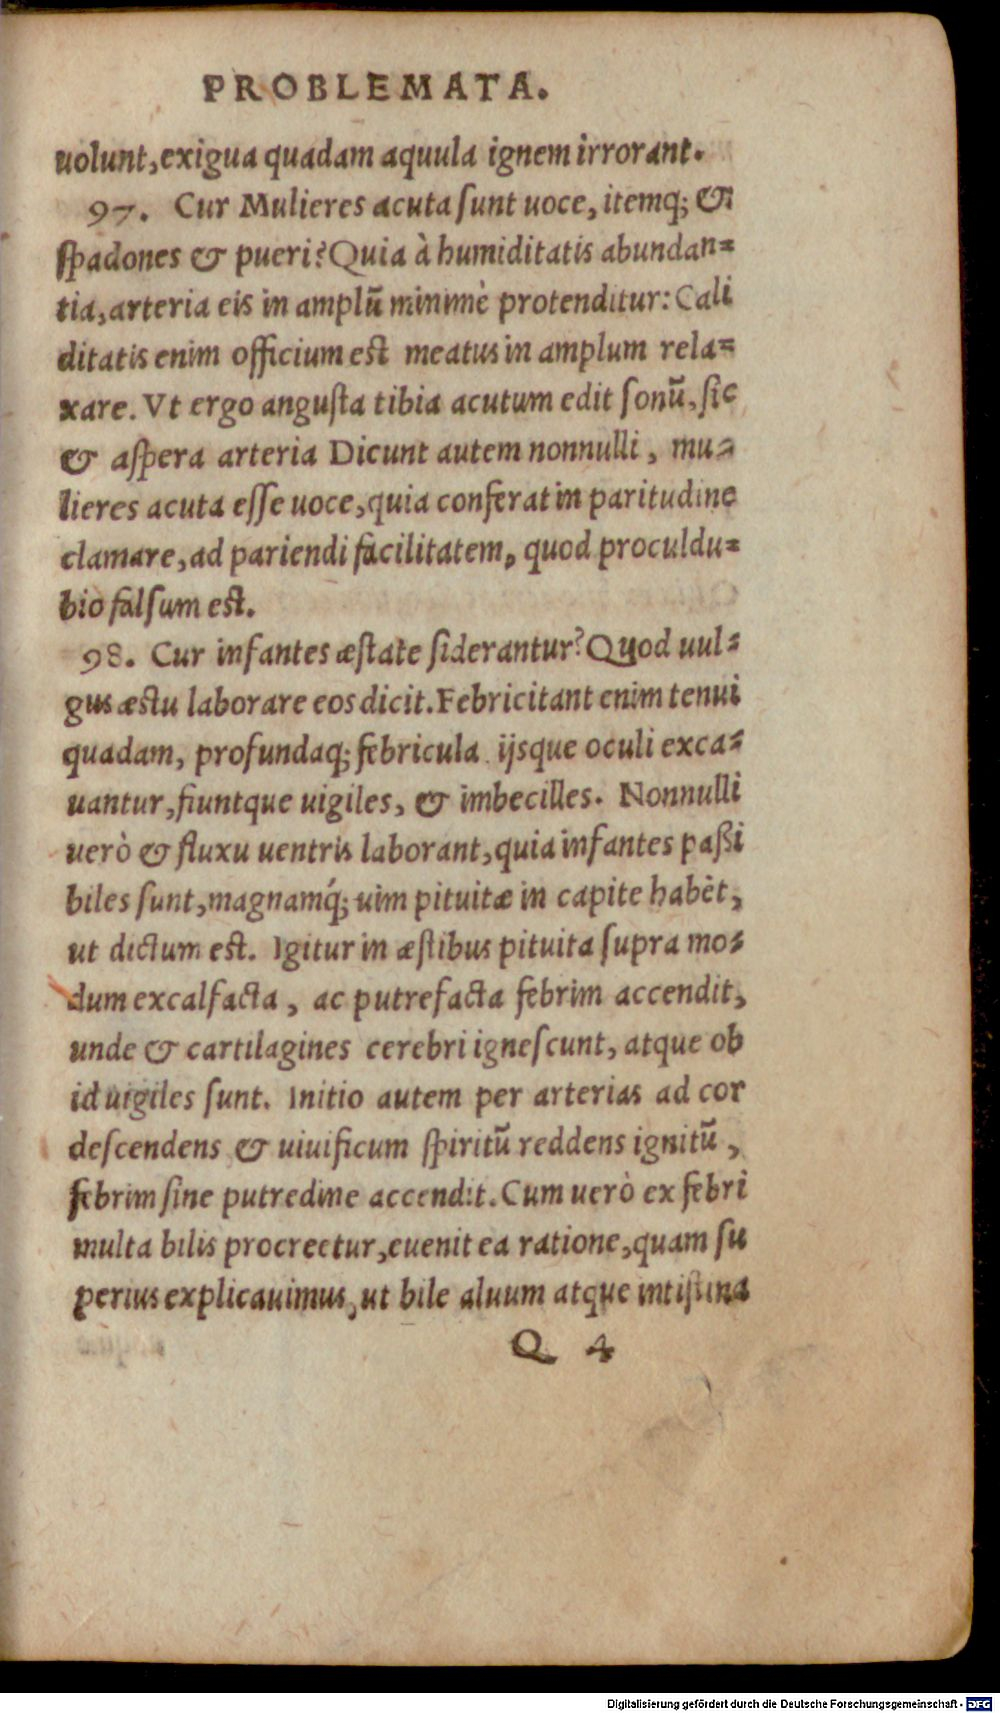 PROBLEMATA.
uolunt, exigua quadam aquula ignem irrorant.
97. Cur Mulieres acuta sunt uoce, itemq; &
spadones & pueri? Quia à humiditatis abundan=
tia, arteria eis in amplũ minimè protenditur: Cali
ditatis enim officium est meatus in amplum rela=
xare. Vt ergo angusta tibia acutum edit sonũ, sic
& aspera arteria Dicunt autem nonnulli, mu=
lieres acuta esse uoce, quia conferat in paritudine
clamare, ad pariendi facilitatem, quod proculdu=
bio falsum est.
98. Cur infantes æstate siderantur? Quod uul=
gus æstu laborare eos dicit. Febricitant enim tenui
quadam, profundaq; febricula. ijsque oculi exca=
uantur, fiuntque uigiles, & imbecilles. Nonnulli
uerò & fluxu uentris laborant, quia infantes paßi
biles sunt, magnamq́; uim pituitæ in capite habẽt,
ut dictum est. Igitur in æstibus pituita supra mo=
dum excalfacta, ac putrefacta febrim accendit,
unde & cartilagines cerebri ignescunt, atque ob
id uigiles sunt. Initio autem per arterias ad cor
descendens & uiuificum spiritũ reddens ignitũ,
febrim sine putredine accendit. Cum uerò ex febri
multa bilis procreetur, euenit ea ratione, quam su
perius explicauimus, ut bile aluum atque intistina
Q 4
Digitalisierung gefördert durch die Deutsche Forschungsgemeinschaft - DFG